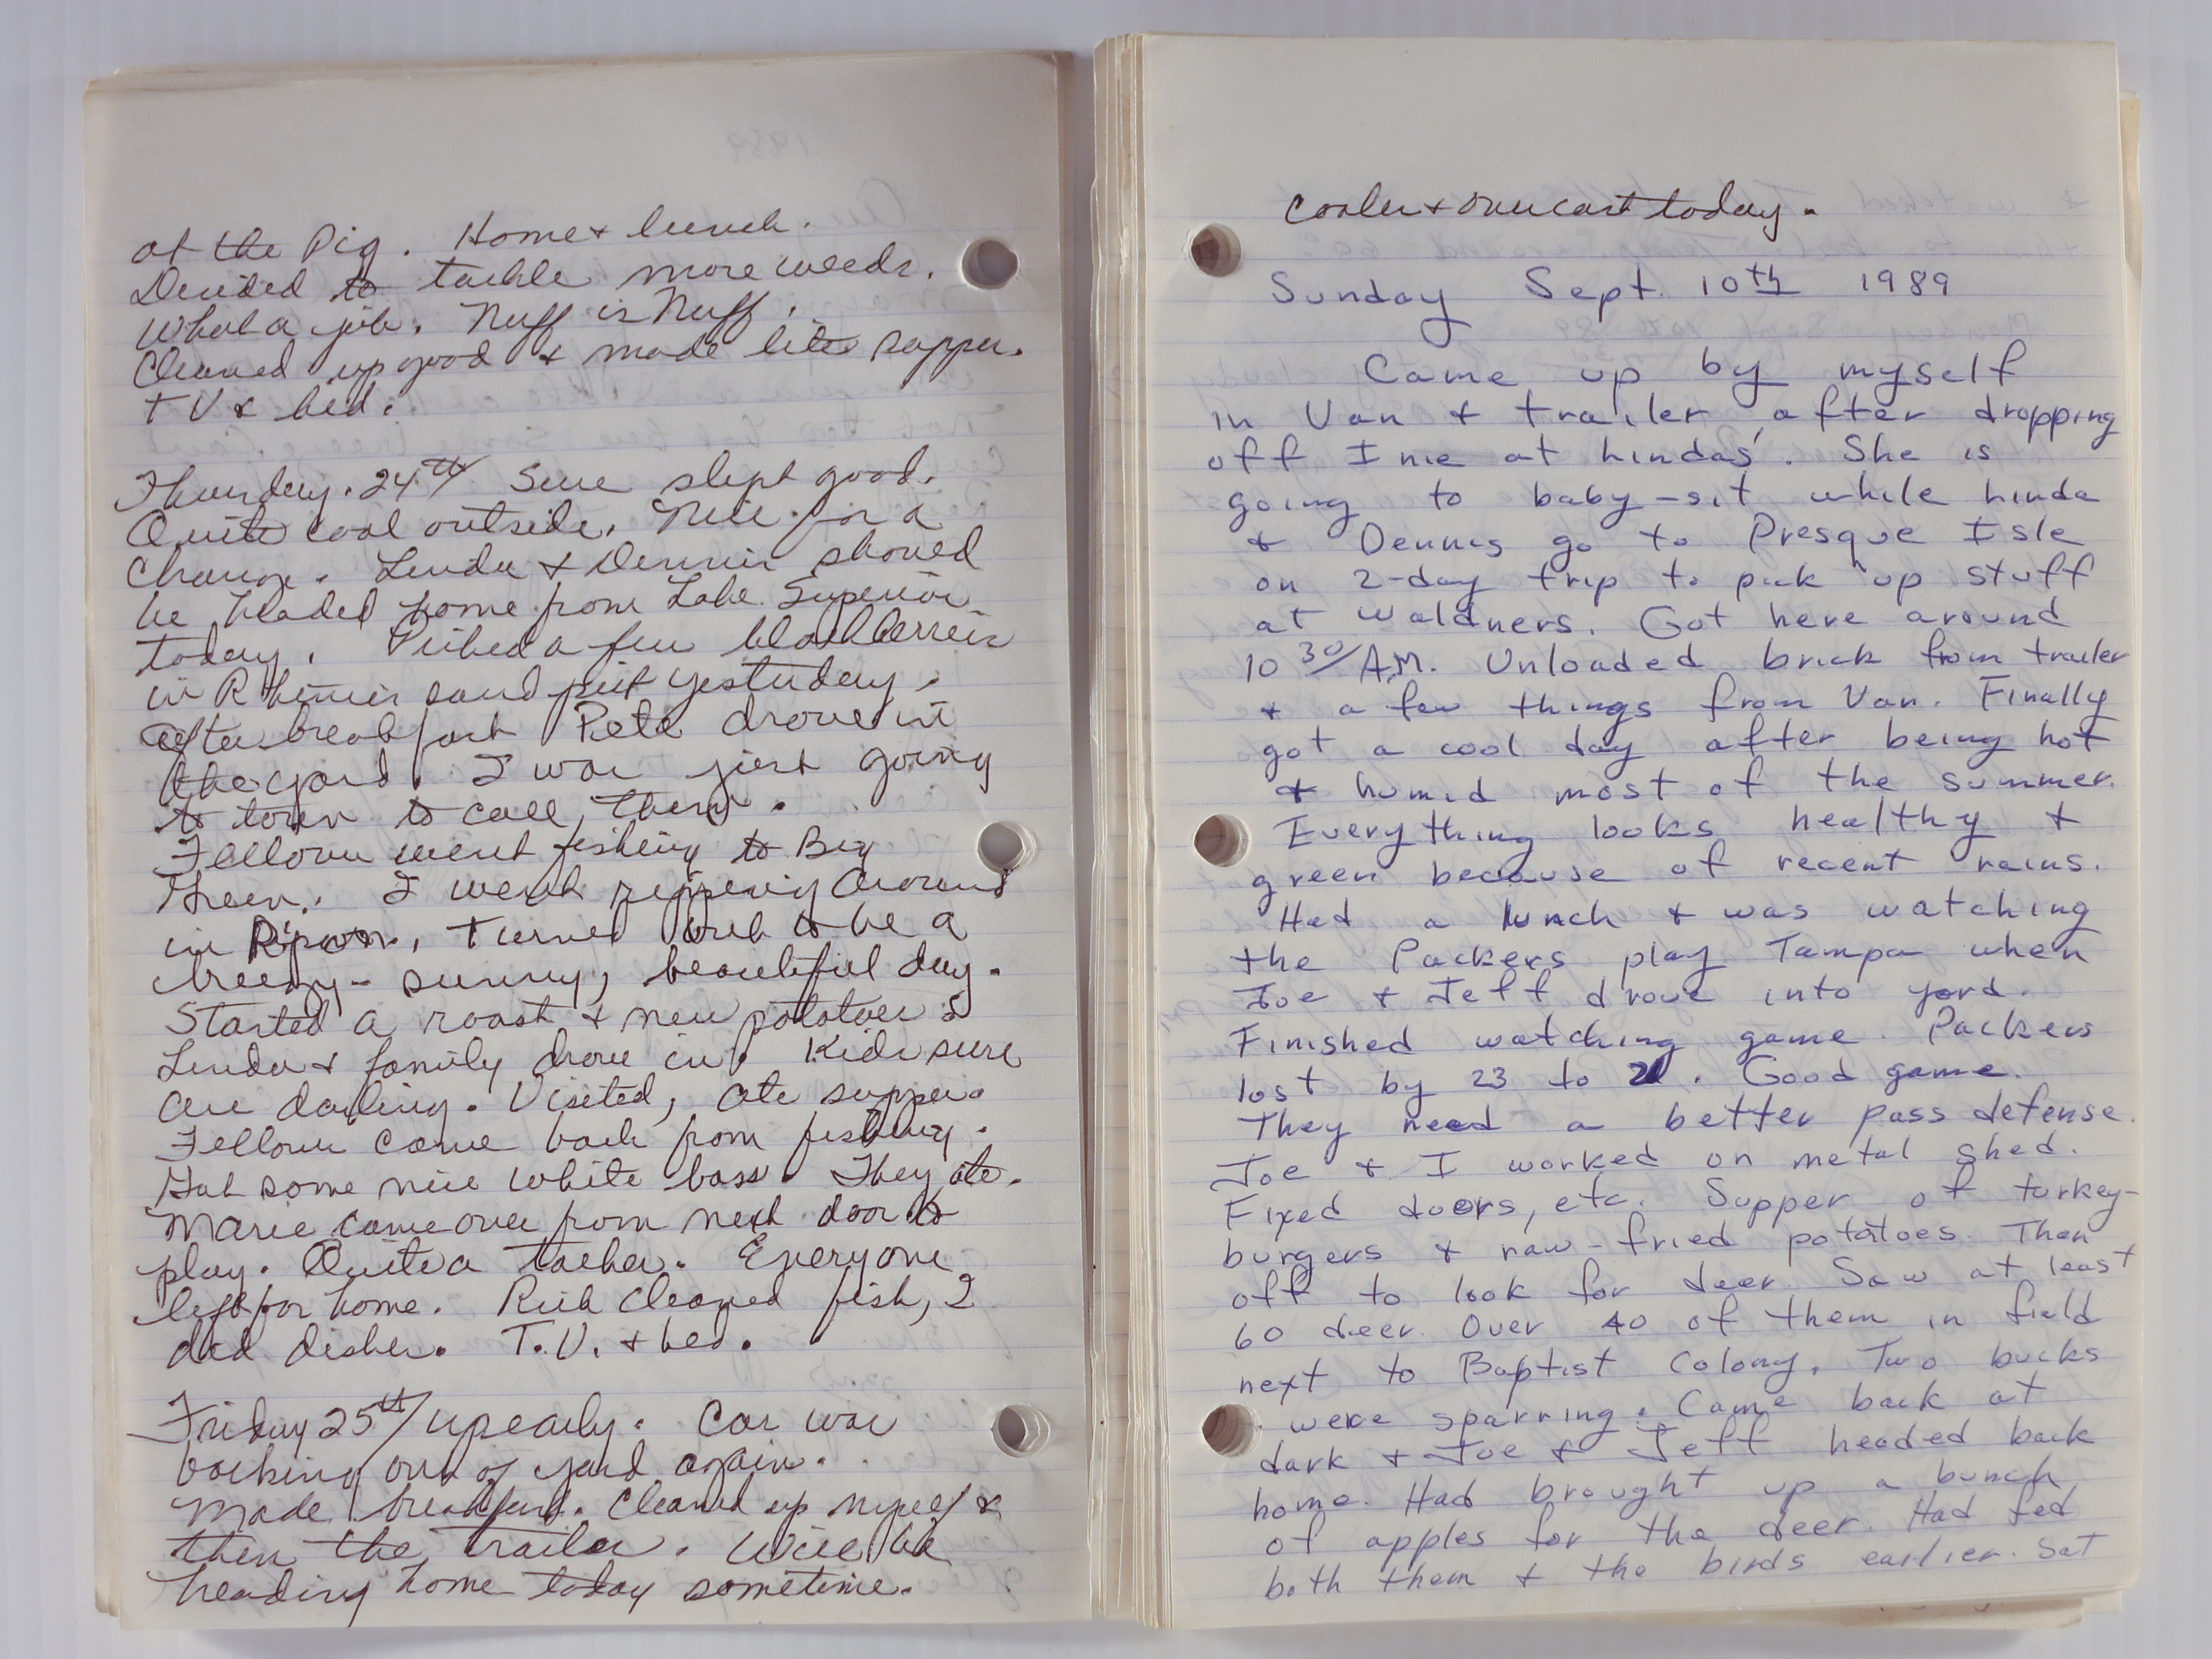 at the Pig. Home & lunch.
Decided to tackle more weeds.
What a job. Nuff is Nuff.
Cleaned up good & made lite supper.
TV & bed.
Thursday. 24th/ Sure slept good.
Quite cool outside. Nice for a
change. Linda & Dennis should
be headed home from Lake Superior
today. Picked a few blackberries
in sand pit yesterday.
After breakfast Pete drove in
the yard. I was just going
to town to call them.
Fellows went fishing to Big
Green. I went around
in Ripon. Turned out to be a
breezy - sunny, beautiful day.
Started a roast & new potatoes &
Linda & family drove in. Kids sure
are darling. Visited, ate supper.
Fellows came back from fishing.
Got some nice white bass. They ate.
Marie came over from next door to
play. Quite a talker. Everyone
left for home. Rich cleaned fish, I
did dishes. T.V. & bed.
Friday 25th/ up early. Car was
backing out of yard again.
Made breakfast. Cleaned up myself &
then the trailer. Will be
heading home today sometime.
Cooler & overcast today.
Sunday Sept. 10th 1989
Came up by myself
in Van & trailer after dropping
off Inie at Lindas'. She is
going to baby-sit while Linda
& Dennis go to Presque Isle
on 2-day trip to pick up stuff
at Waldners. Got here around
10 30/ A.M. Unloaded brick from trailer
& a few things from Van. Finally
got a cool day after being hot
& humid most of the summer.
Everything looks healthy &
green because of recent rains.
Had a lunch & was watching
the Packers play Tampa when
Joe & Jeff drove into yard.
Finished watching game. Packers
lost by 23 to 21. Good game.
They need a better pass defense.
Joe & I worked on metal shed.
Fixed doors, etc. Supper of turkey-
burgers & raw-fried potatoes. Then
off to look for deer. Saw at least
60 deer. Over 40 of them in field
next to Baptist Colony. Two bucks
were sparring. Came back at
dark & Joe & Jeff headed back
home. Had brought up a bunch
of apples for the deer. Had fed
both them & the birds earlier. Sat